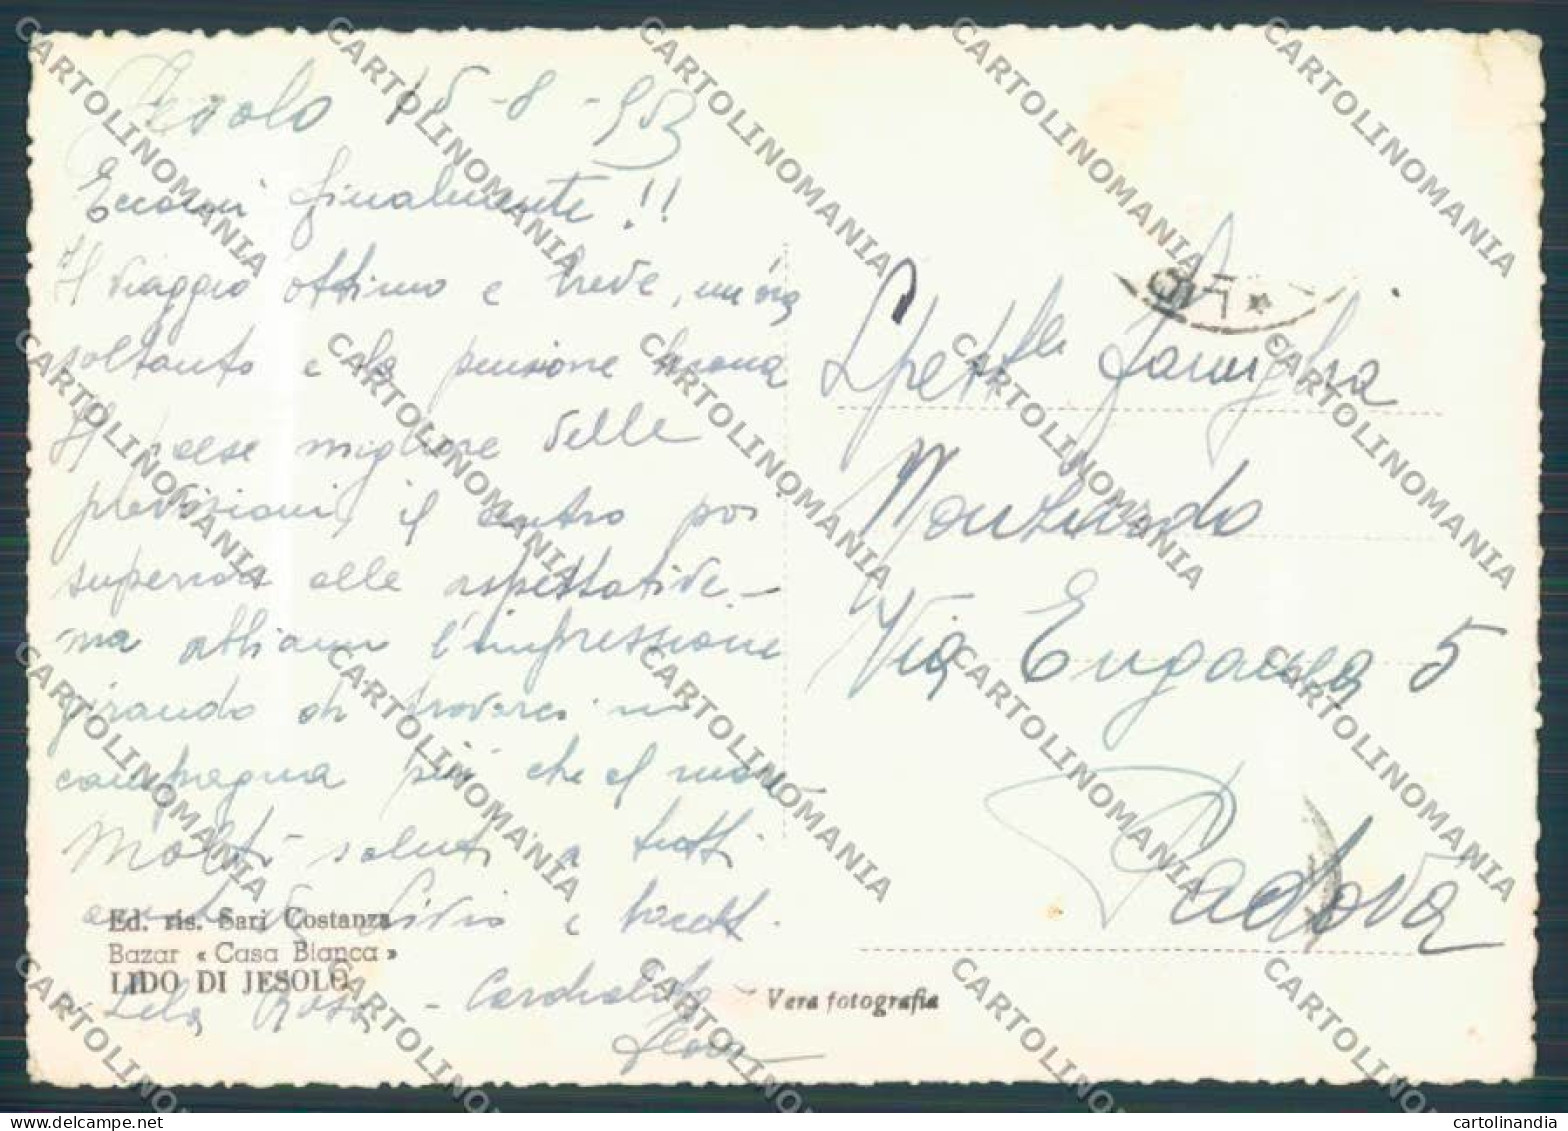 Jesolo 15-8-953
Eccomi finalmente!!
Il viaggio ottimo e breve,
soltanto e la pensione buona
Il paese migliore delle
previsioni, il centro poi
superiore alle aspettative –
ma abbiam l'impressione
girando di trovarci in
campagna più che al mare
Molti saluti a tutti
e bacetti.
Lela Rosa - Cordialità
Flora
Ed. ris. Sari Costanza
Bazar « Casa Bianca »
LIDO DI JESOLO
Vera fotografia
Spett/le Famiglia
Via Euganea 5
Padova
CARTOLINOMANIA
cartolinandia